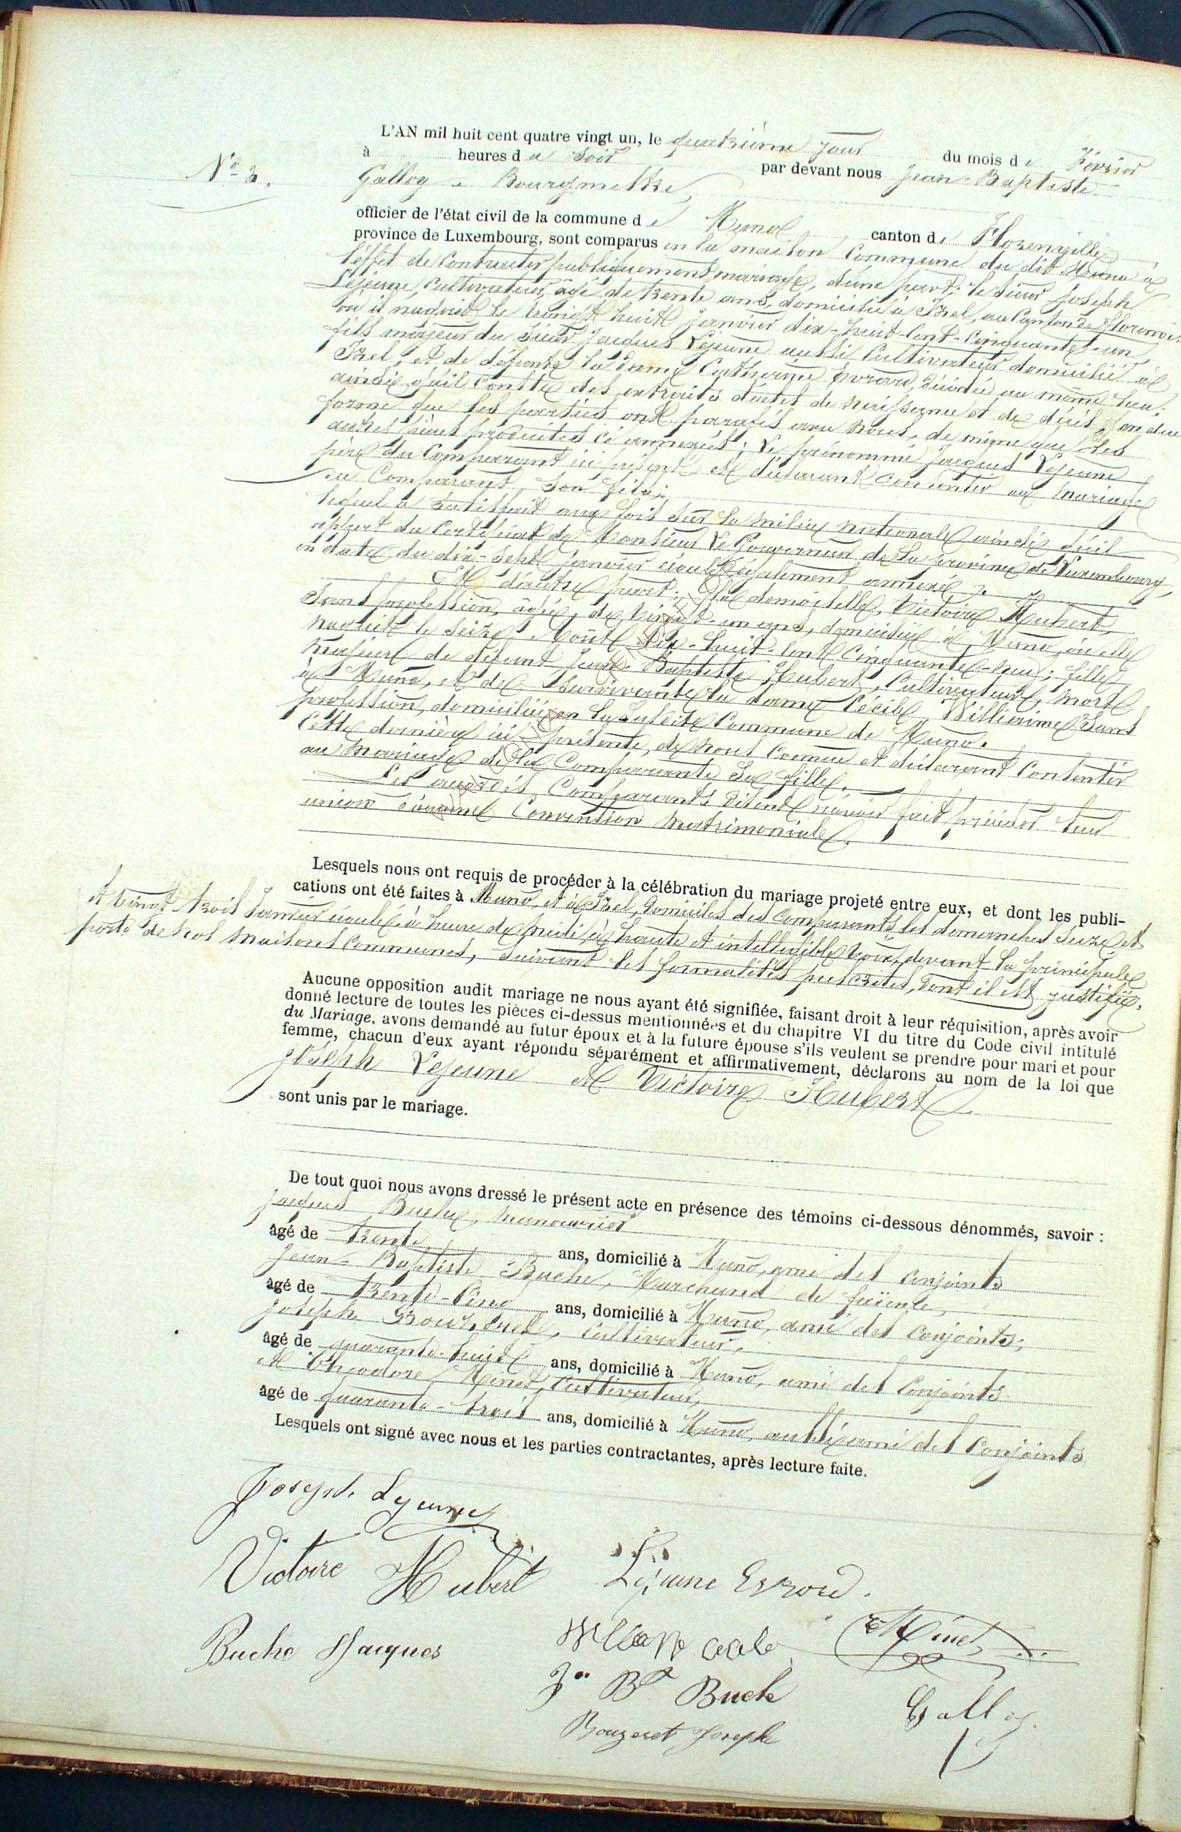 N° 2.
L'AN mil huit cent quatre vingt un, le quatrième jour du mois de Février
à heures du soir par devant nous Jean-Baptiste
Galloy, Bourgmestre,
officier de l'état civil de la commune de Muno canton de Florenville
province de Luxembourg, sont comparus en la maison Commune du dit Muno à
l'effet de contracter publiquement mariage, d'une part: le sieur Joseph
Lejeune, Cultivateur, âgé de trente ans, domicilié à Izel, au Canton de Florenville
où il naquit le vingt huit Janvier dix-huit-cent-Cinquante-un,
fils majeur du Sieur Jacques Lejeune aussi Cultivateur domicilié à
Izel, et de défunte la dame Catherine Evrard, décédée au même lieu;
ainsi qu'il Conste des extraits d'actes de naissance et de décès, en due
forme que les parties ont parafés avec Nous, de même que les
autres pièces produites ci annexées; le prénommé Jacques Lejeune
père du Comparant ici présent et déclarant consentir au mariage
du Comparant, son fils;
lequel a satisfait aux lois sur la milice nationale ainsi qu'il
appert du Certificat de Monsieur Le Gouverneur de la province de Luxembourg,
en date du dix-sept janvier écoulé également annexé
Et d'autre part: la demoiselle Victoire Hubert,
Sans profession, âgée de vingt-un ans, domiciliée à Muno, où elle
naquit le seize Août dix-huit-cent cinquante-neuf; fille
majeure de défunt Jean-Baptiste Hubert, Cultivateur, mort
à Muno, et de survivante la dame Cécile Willaume Sans
profession, domiciliée en la susdite Commune de Muno.
Cette dernière ici présente, de nous Connue et déclarant Consentir
au mariage de la Comparante sa fille.
Les Comparants disent n'avoir fait précéder leur
union d'aucune Convention Matrimoniale.
Lesquels nous ont requis de procéder à la célébration du mariage projeté entre eux, et dont les publi-
cations ont été faites à Muno, et à Izel, Domiciles des Comparants, les dimanches seize et
vingt trois Janvier écoulé, à heure de midi, à haute et intelligible voix, devant la principale
porte de nos Maisons Communes, suivant les formalités prescrites, dont il est justifié.
Aucune opposition audit mariage ne nous ayant été signifiée, faisant droit à leur réquisition, après avoir
donné lecture de toutes les pièces ci-dessus mentionnées et du chapitre VI du titre du Code civil intitulé
du Mariage, avons demandé au futur époux et à la future épouse s'ils veulent se prendre pour mari et pour
femme, chacun d'eux ayant répondu séparément et affirmativement, déclarons au nom de la loi que
Joseph Lejeune et Victoire Hubert
sont unis par le mariage.
De tout quoi nous avons dressé le présent acte en présence des témoins ci-dessous dénommés, savoir :
Jacques Buche, manouvrier
âgé de trente ans, domicilié à Muno, ami des conjoints
Jean-Baptiste Buche, Marchand de faïence,
âgé de trente-cinq ans, domicilié à Muno, ami des conjoints;
Joseph Cultivateur,
âgé de quarante-huit ans, domicilié à Muno, ami des Conjoints
Et Théodore Minet, Cultivateur,
âgé de quarante-trois ans, domicilié à Muno, aussi ami des conjoints
Lesquels ont signé avec nous et les parties contractantes, après lecture faite.
Joseph Lejeune
Victoire Hubert
Lejeune Evrard.
Buche Jacques
Minet
Jn Bte Buche
Galloy
Bouzeret Joseph